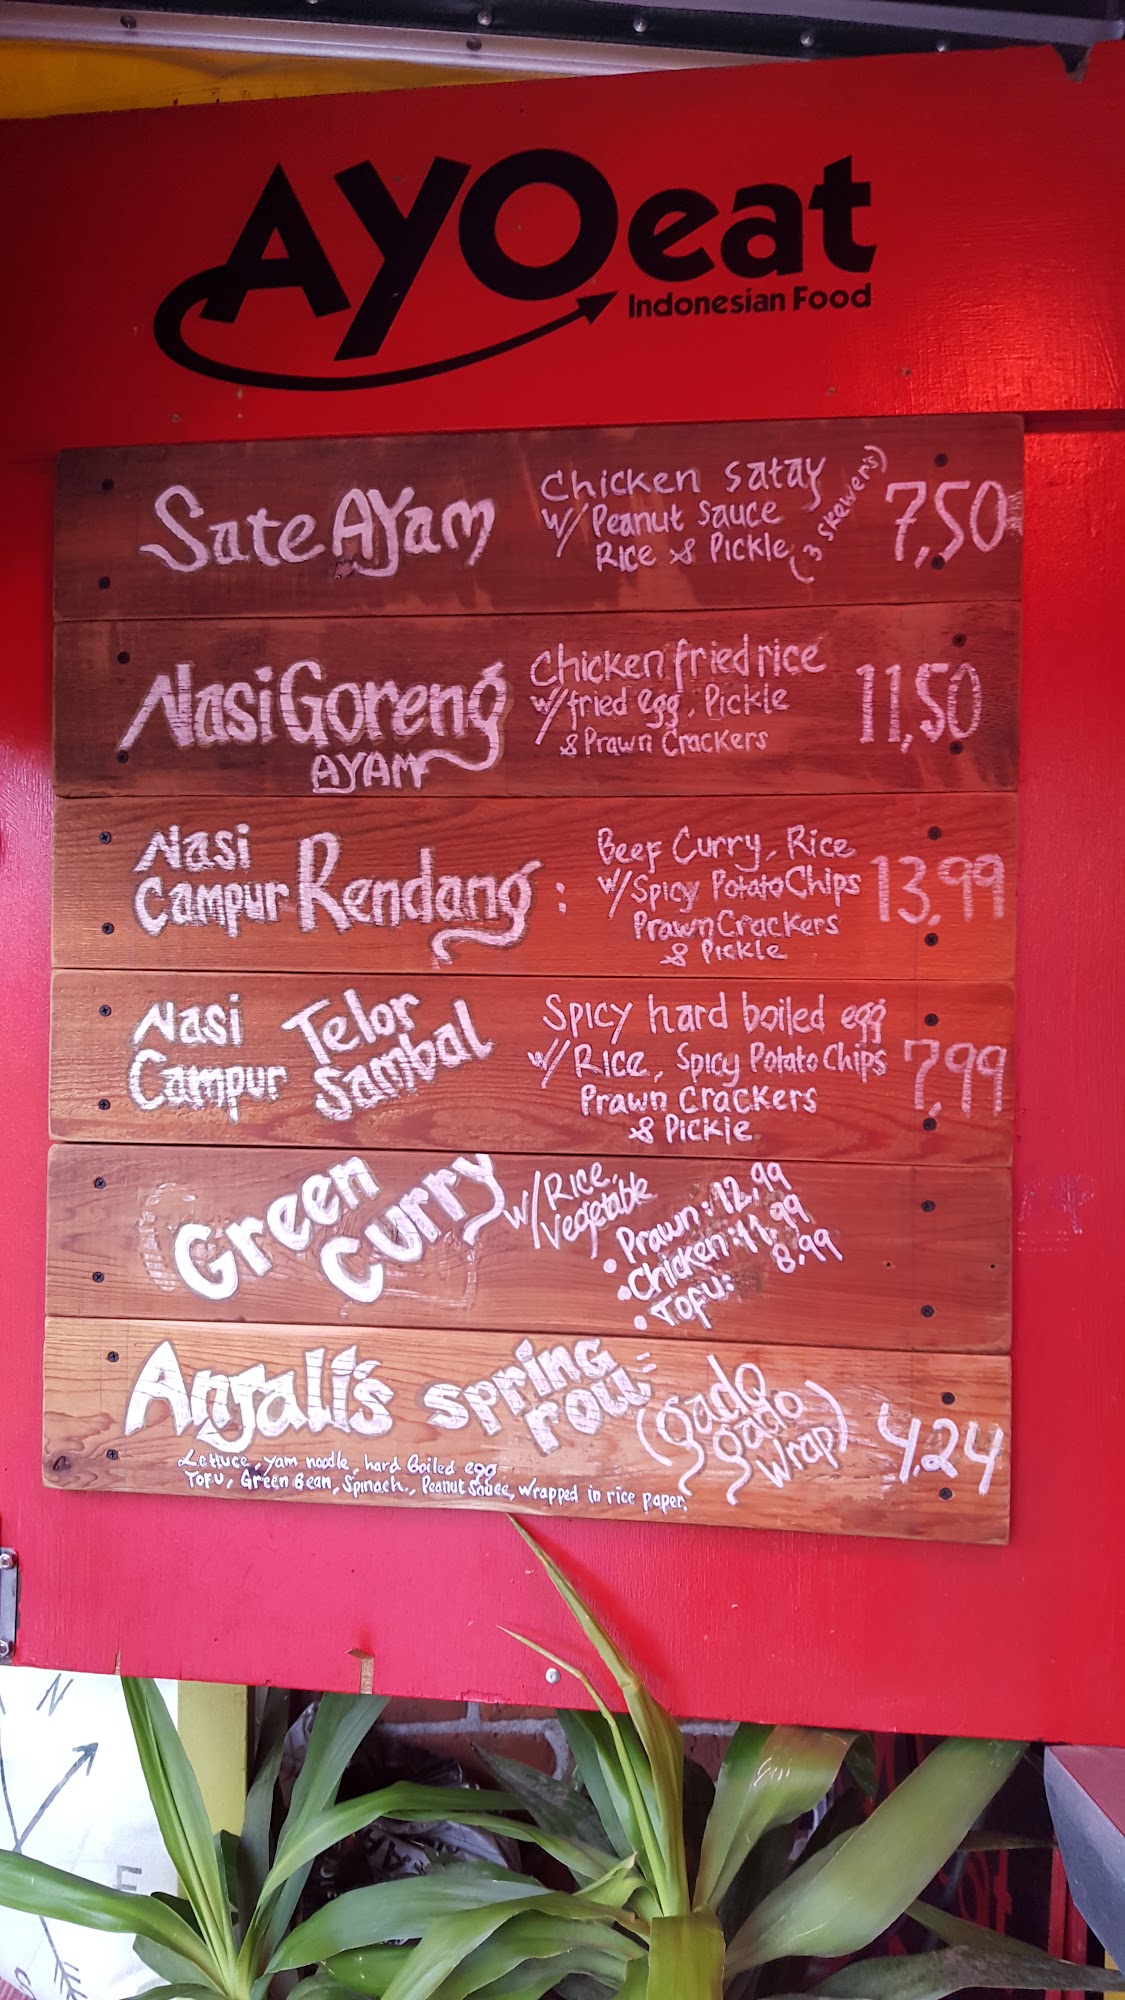 AYOeat
Indonesian Food
Sate AYam
Chicken Satay
w/ Peanut Sauce
Rice & Pickle (3 Skewers)
7,50
Nasi Goreng
AYAM
Chicken fried rice
w/ fried egg, Pickle
& Prawn Crackers
11,50
Nasi
Campur Rendang :
Beef Curry, Rice
w/ Spicy Potato Chips
Prawn Crackers
& Pickle
13,99
Nasi
Campur
Telor
Sambal
Spicy hard boiled egg
w/ Rice, Spicy Potato Chips
Prawn Crackers
& Pickle
7,99
Green
Curry
w/ Rice,
Vegetable
• Prawn: 12,99
• Chicken: 11,99
• Tofu: 8,99
Anjali's spring
roll =
(gado
gado
Wrap)
4,24
Lettuce, yam noodle, hard boiled egg
TOFU, Green Bean, Spinach, Peanut Sauce, wrapped in rice paper.
N
E